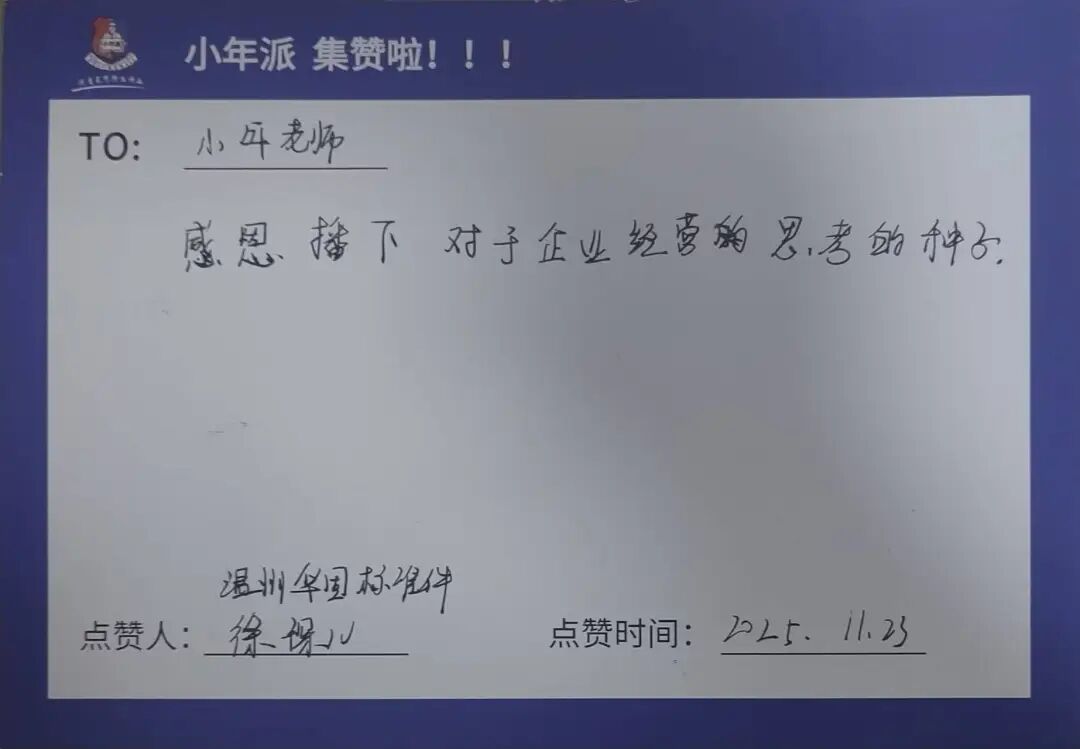 小年派 集赞啦！！！
TO: 小年老师
感恩播下 对于企业经营的思考的种子.
温州华固标准件
点赞人: 徐
点赞时间: 2025. 11.23